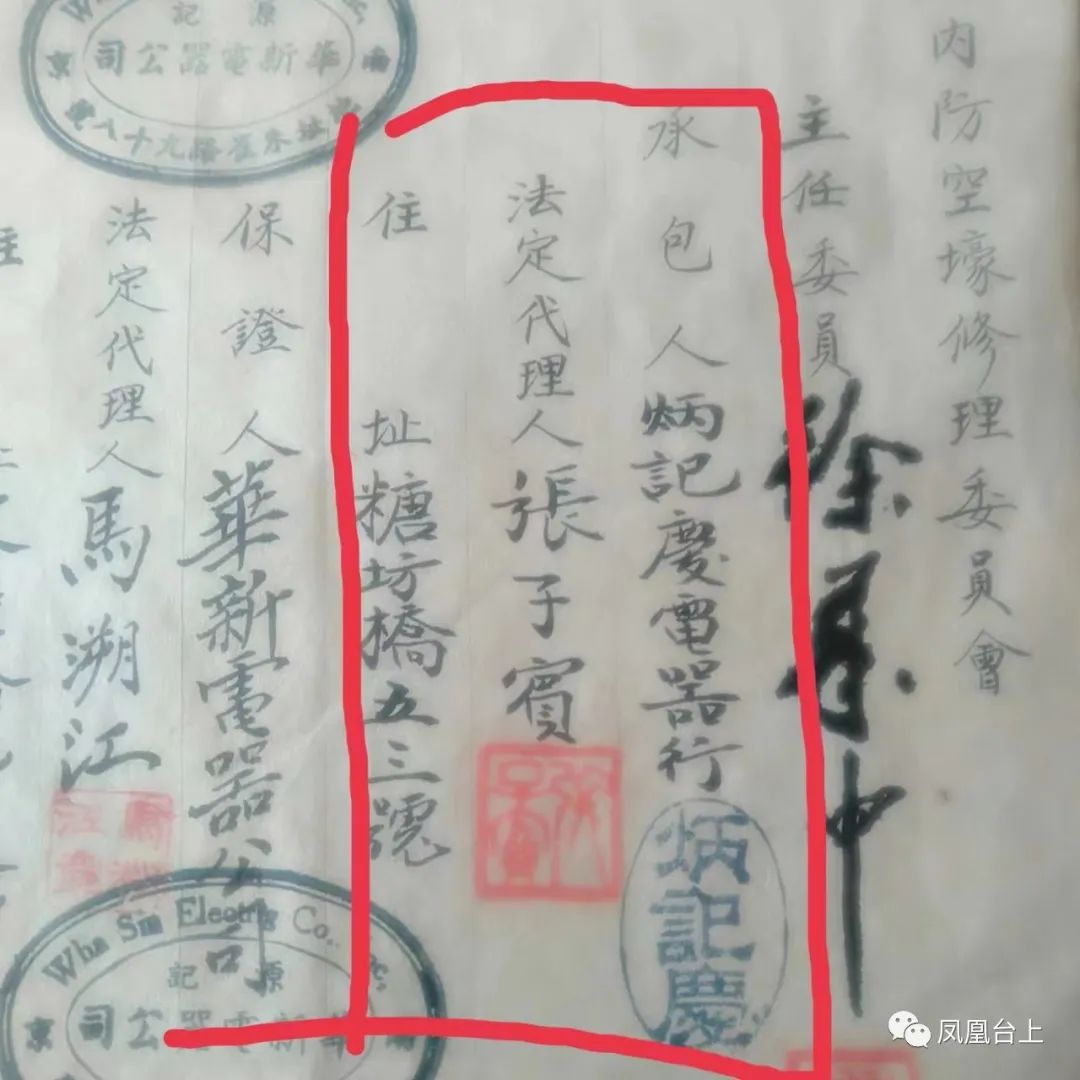 內防空壕修理委員會
主任委員
承包人炳記慶電器行
炳記慶
法定代理人張子賓
張子賓
住址糖坊橋五三號
保證人華新電器公司
法定代理人馬溯江
源記
華新電器公司
Wha Sin Electric Co.
源記
華新電器公司
住
凤凰台上